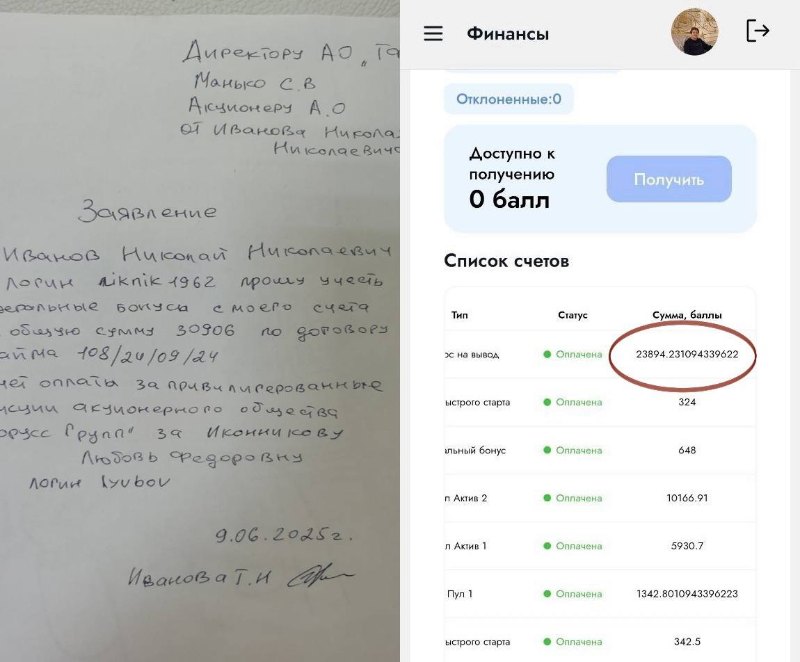 Директору АО "ТФ
Манько С.В
Акционеру А.О
от Иванова Никола
Николаевича
Заявление
Иванов Николай Николаевич
логин niknik1962 прошу учесть
еральные бонусы с моего счета
общую сумму 30906 по договору
айма 108/24/09/24
чет оплаты за привилигерованные
кции акционерного общества
орусс Групп" за Иконникову
Любовь Федоровну
логин lyubov
9.06.2025г.
Иванова Т.И
Финансы
Отклоненные:0
Доступно к
получению
0 балл
Получить
Список счетов
Тип Статус Сумма, баллы
ос на вывод Оплачена 23894.231094339622
ыстрого старта Оплачена 324
альный бонус Оплачена 648
л Актив 2 Оплачена 10166.91
л Актив 1 Оплачена 5930.7
Пул 1 Оплачена 1342.8010943396223
ыстрого старта Оплачена 342.5